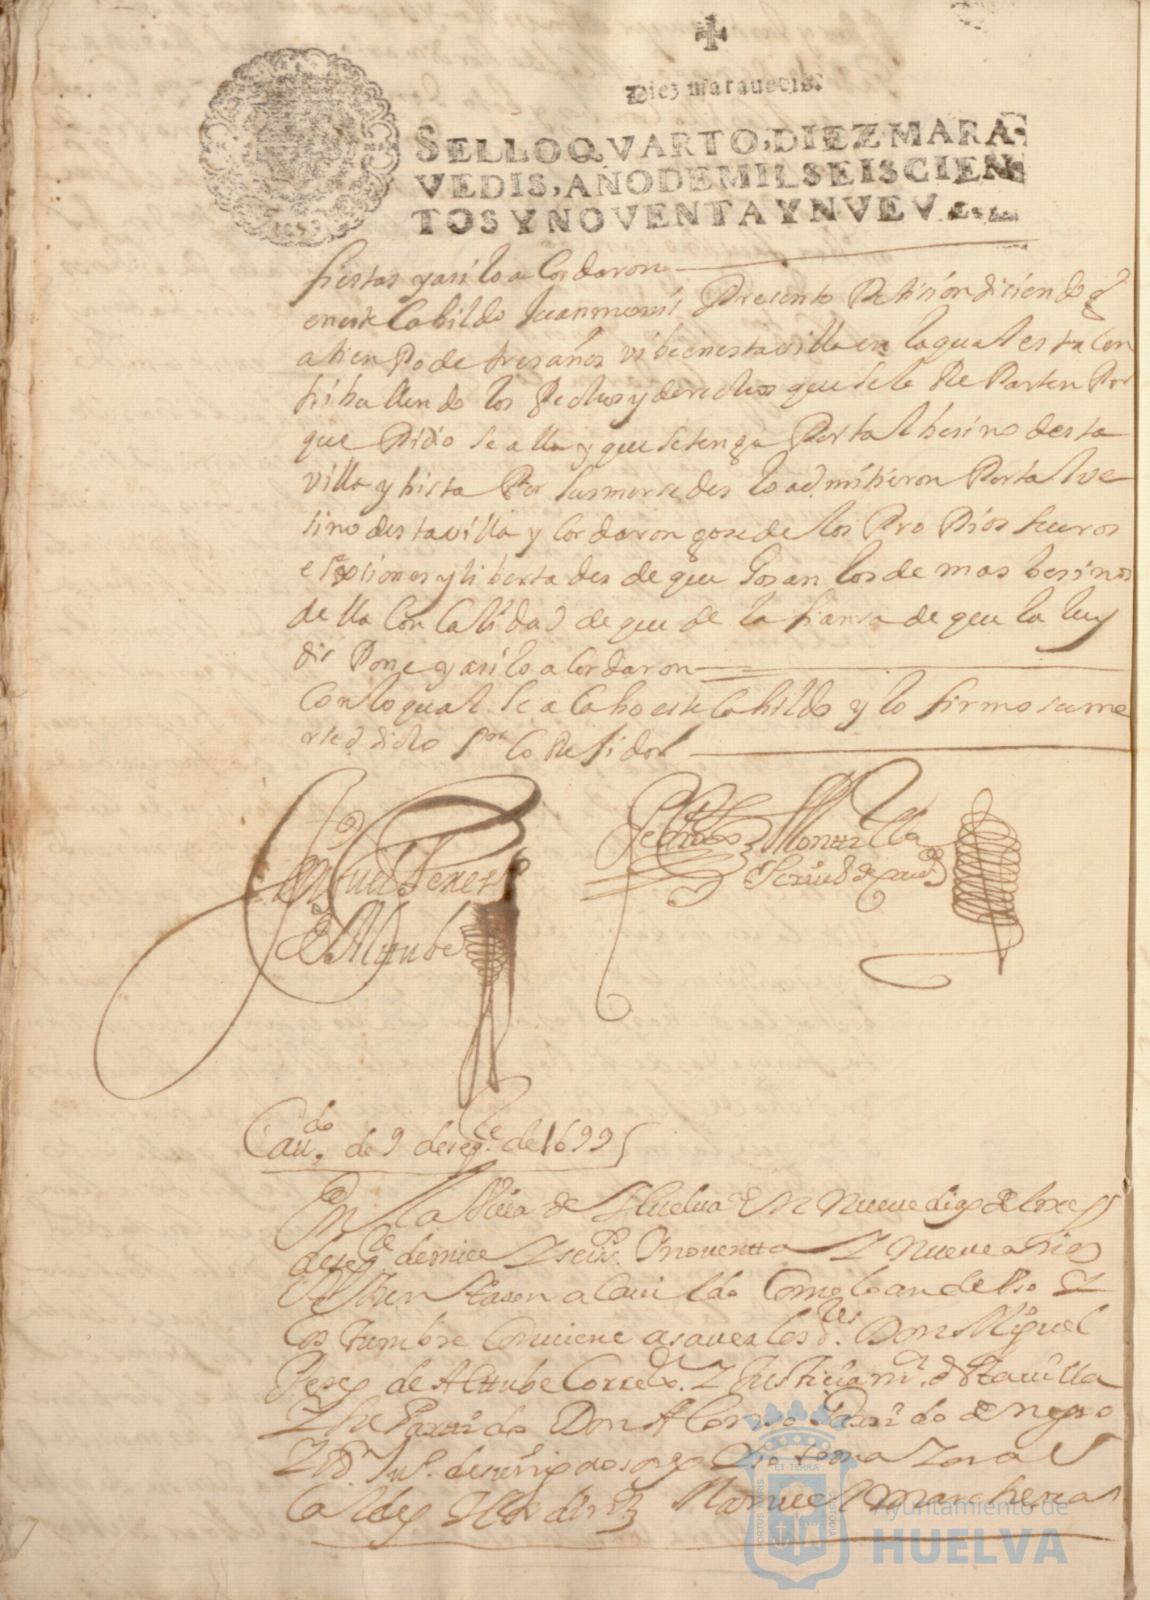 Diez marauedis.
SELLO QVARTO, DIEZ MARA-
VEDIS, AÑO DE MIL SEISCIEN
TOS Y NOVENTA Y NVEVE
fiestas y asi lo a Cordaron
en este Cabildo Juan Presento Petision disiendo q
a tienpo de tres años vibe en esta villa en la qual esta Con
tribullendo los Pechos y derechos que se le Re Parten Por
que Pidio se alla y que se tenga Por tal besino desta
villa y bista Por sus mersedes lo admitieron Por tal ve
sino desta villa y Cordaron gose de los Pro Pios fueros
esecsiones y libertades de que Gosan los demas besinos
della Con Calidad de que de la fiansa de que la ley
dis Pone y asi lo a Cordaron
Con lo qual se a Cabo este Cabildo y lo firmo su me
rsed dicho Sor Co Re Jidor
Don Miguel Perez
de Altube
Pedro Montilla
Scriuo de cauo
Cauo. de 9 de de 1699
En la Villa de Huelua En nueue dias del mes
de de mill y seiso y nouentta y nueue años
se Juntaron a Cauildo Como lo an de Uso y
Costumbre Conuiene a sauer los Sres Don Miguel
Perez de Alttube Corredor y Justicia mor destta uilla
y su Partido Don Alonso Garrido de negro
y Dn
Caldes Manuel Marchena
PORTUS MARIS ET TERRAE CUSTODIA
Ayuntamiento de
HUELVA